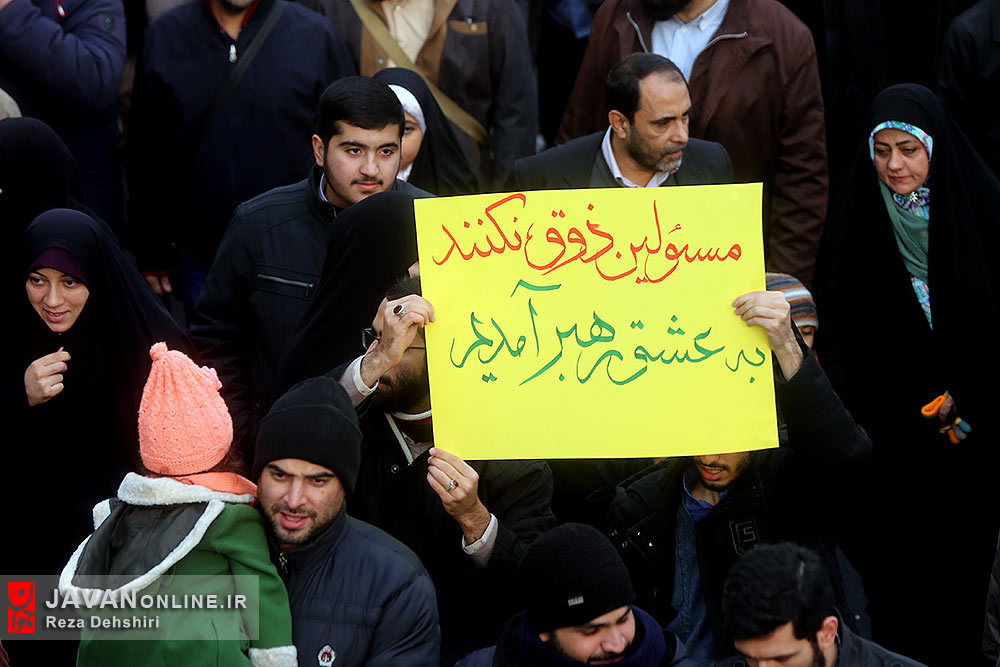 مسئولین ذوق نکنند
به عشق رهبر آمدیم
JAVANONLINE.IR
Reza Dehshiri